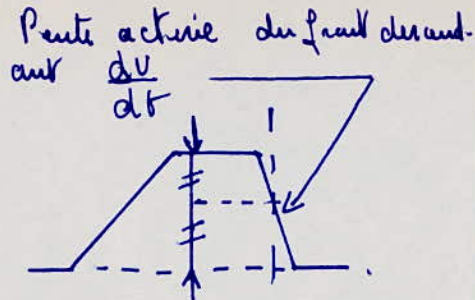 Pente du front descend-
ant dV
dt